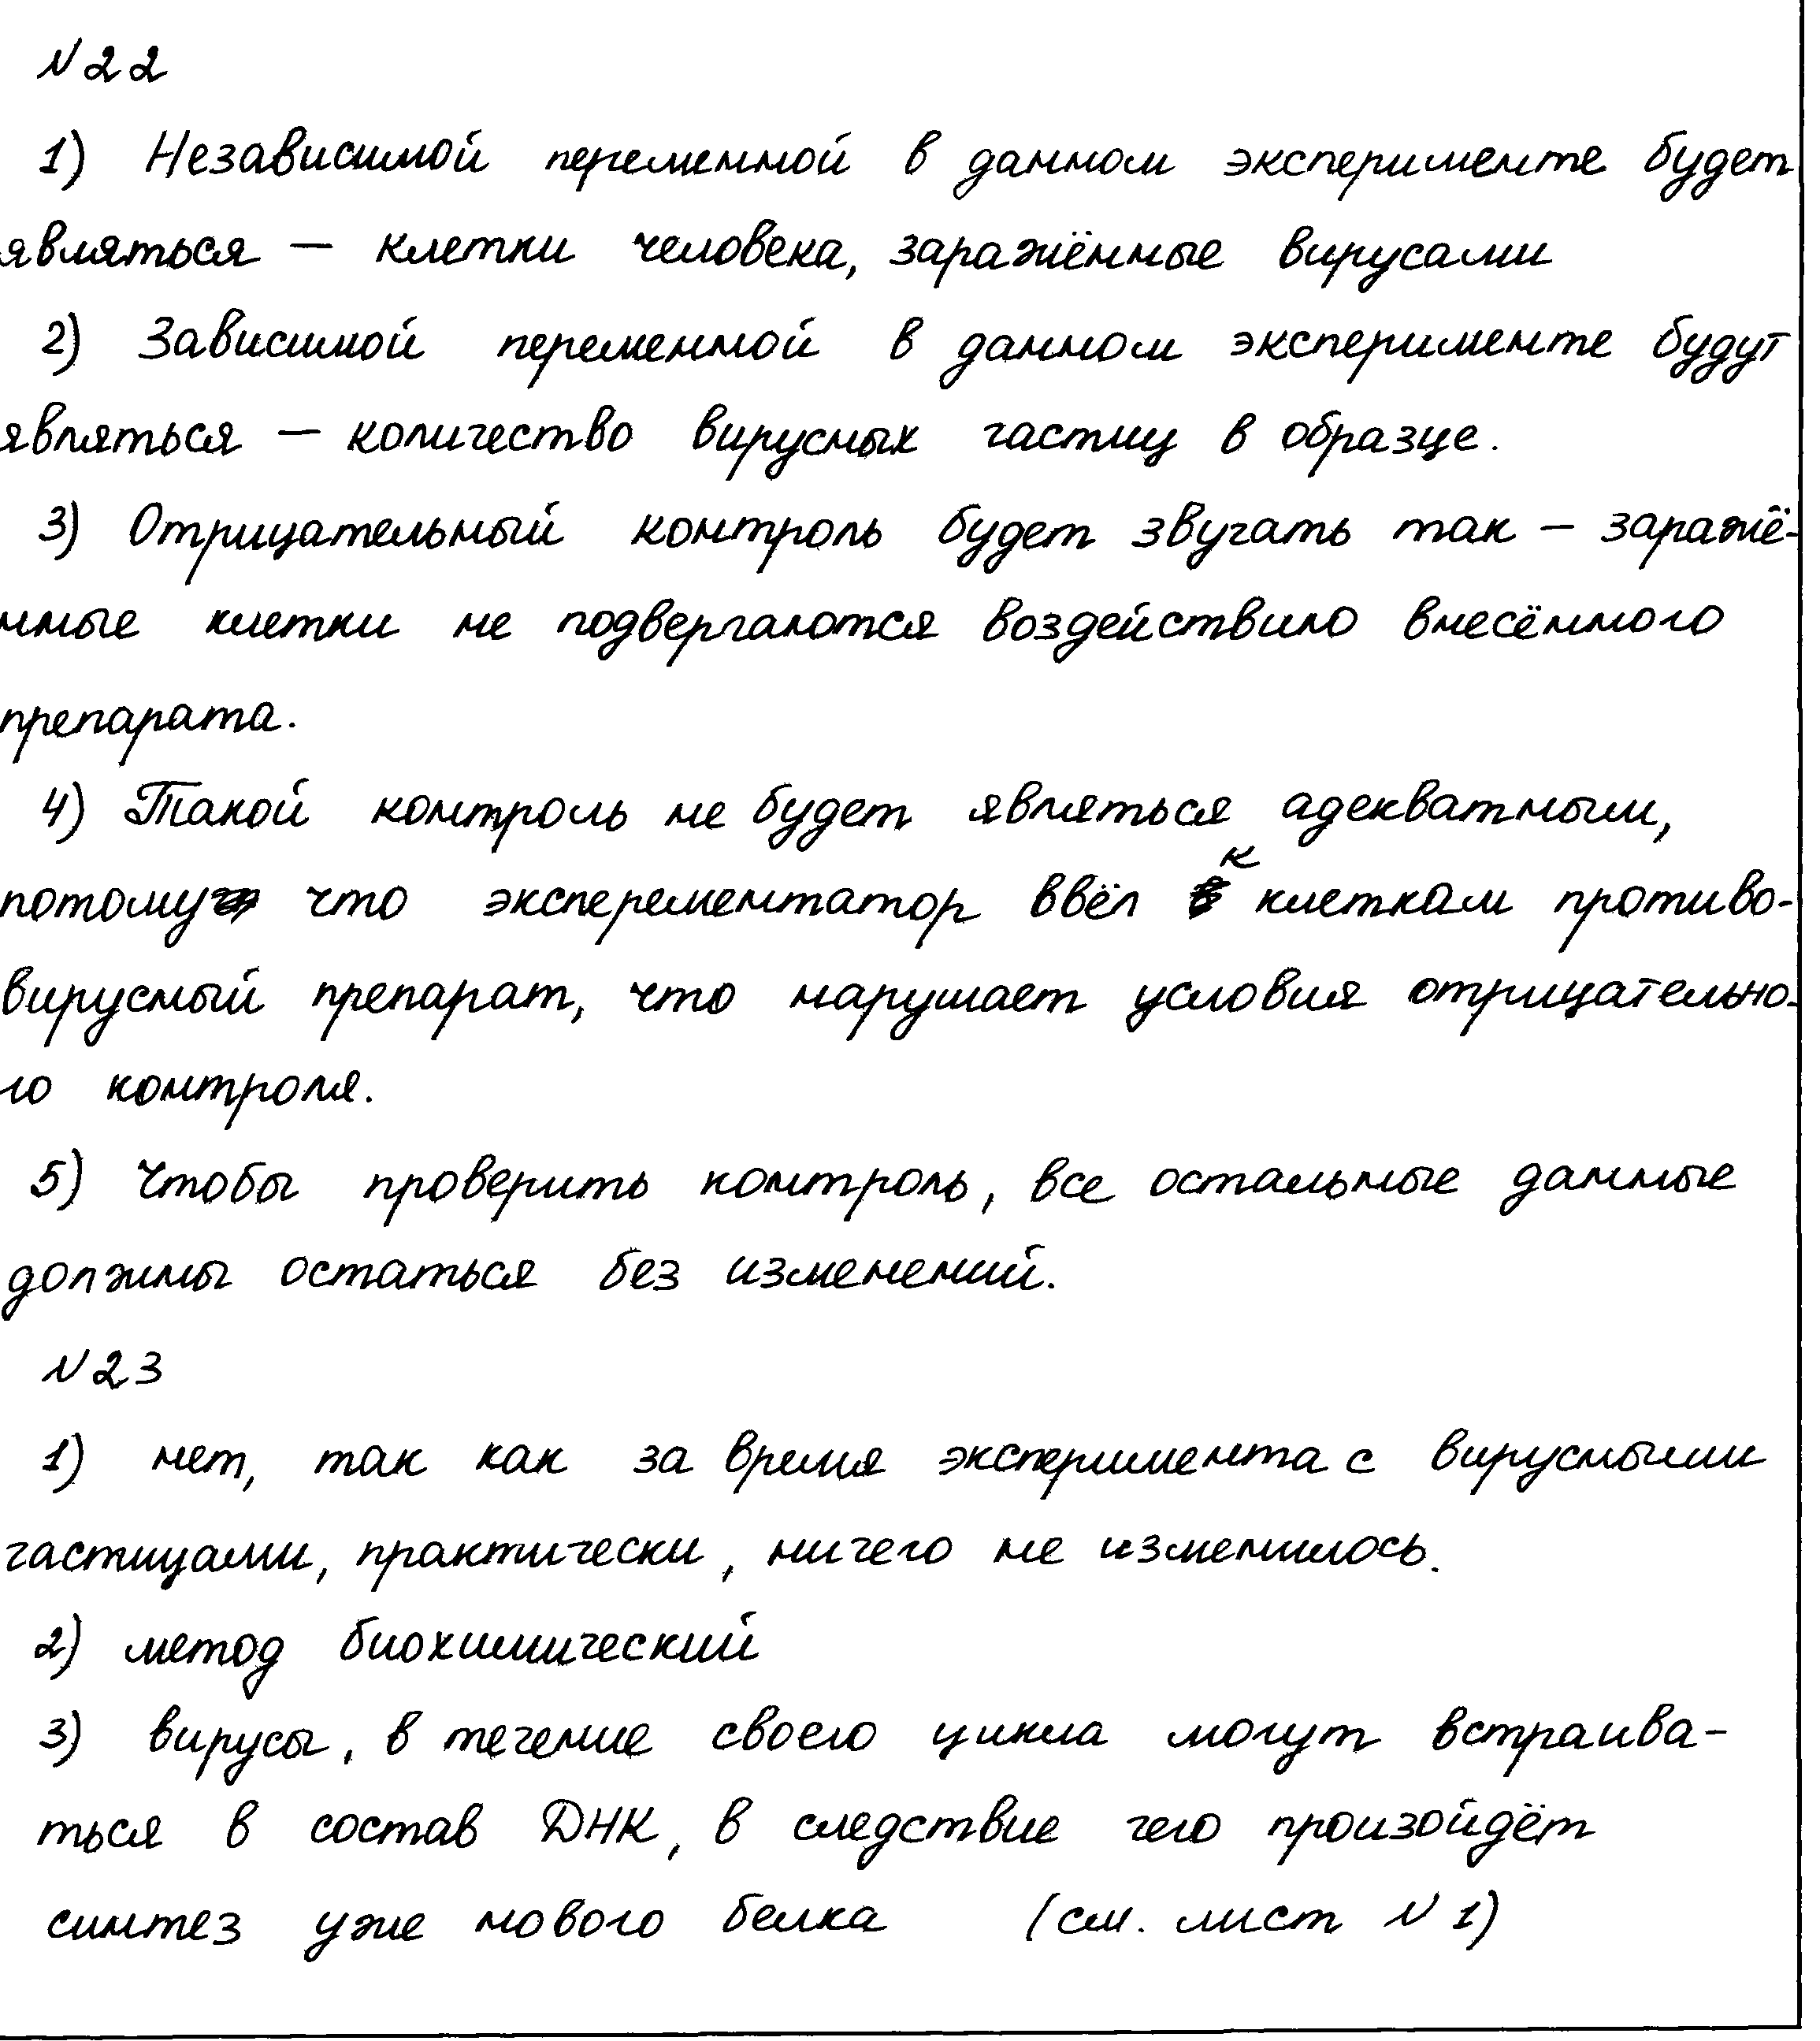 №22
1) Независимой переменной в данном эксперименте будет
являться — клетки человека, заражённые вирусами
2) Зависимой переменной в данном эксперименте будут
являться — количество вирусных частиц в образце.
3) Отрицательный контроль будет звучать так — заражё-
нные клетки не подвергаются воздействию внесённого
препарата.
4) Такой контроль не будет являться адекватным,
потому что эксперементатор ввёл к клеткам противо-
вирусный препарат, что нарушает условия отрицательно-
го контроля.
5) Чтобы проверить контроль, все остальные данные
должны остаться без изменений.
№23
1) нет, так как за время эксперимента с вирусными
частицами, практически, ничего не изменилось.
2) метод биохимический
3) вирусы, в течение своего цикла могут встраива-
ться в состав ДНК, в следствие чего произойдёт
синтез уже нового белка (см. лист №1)